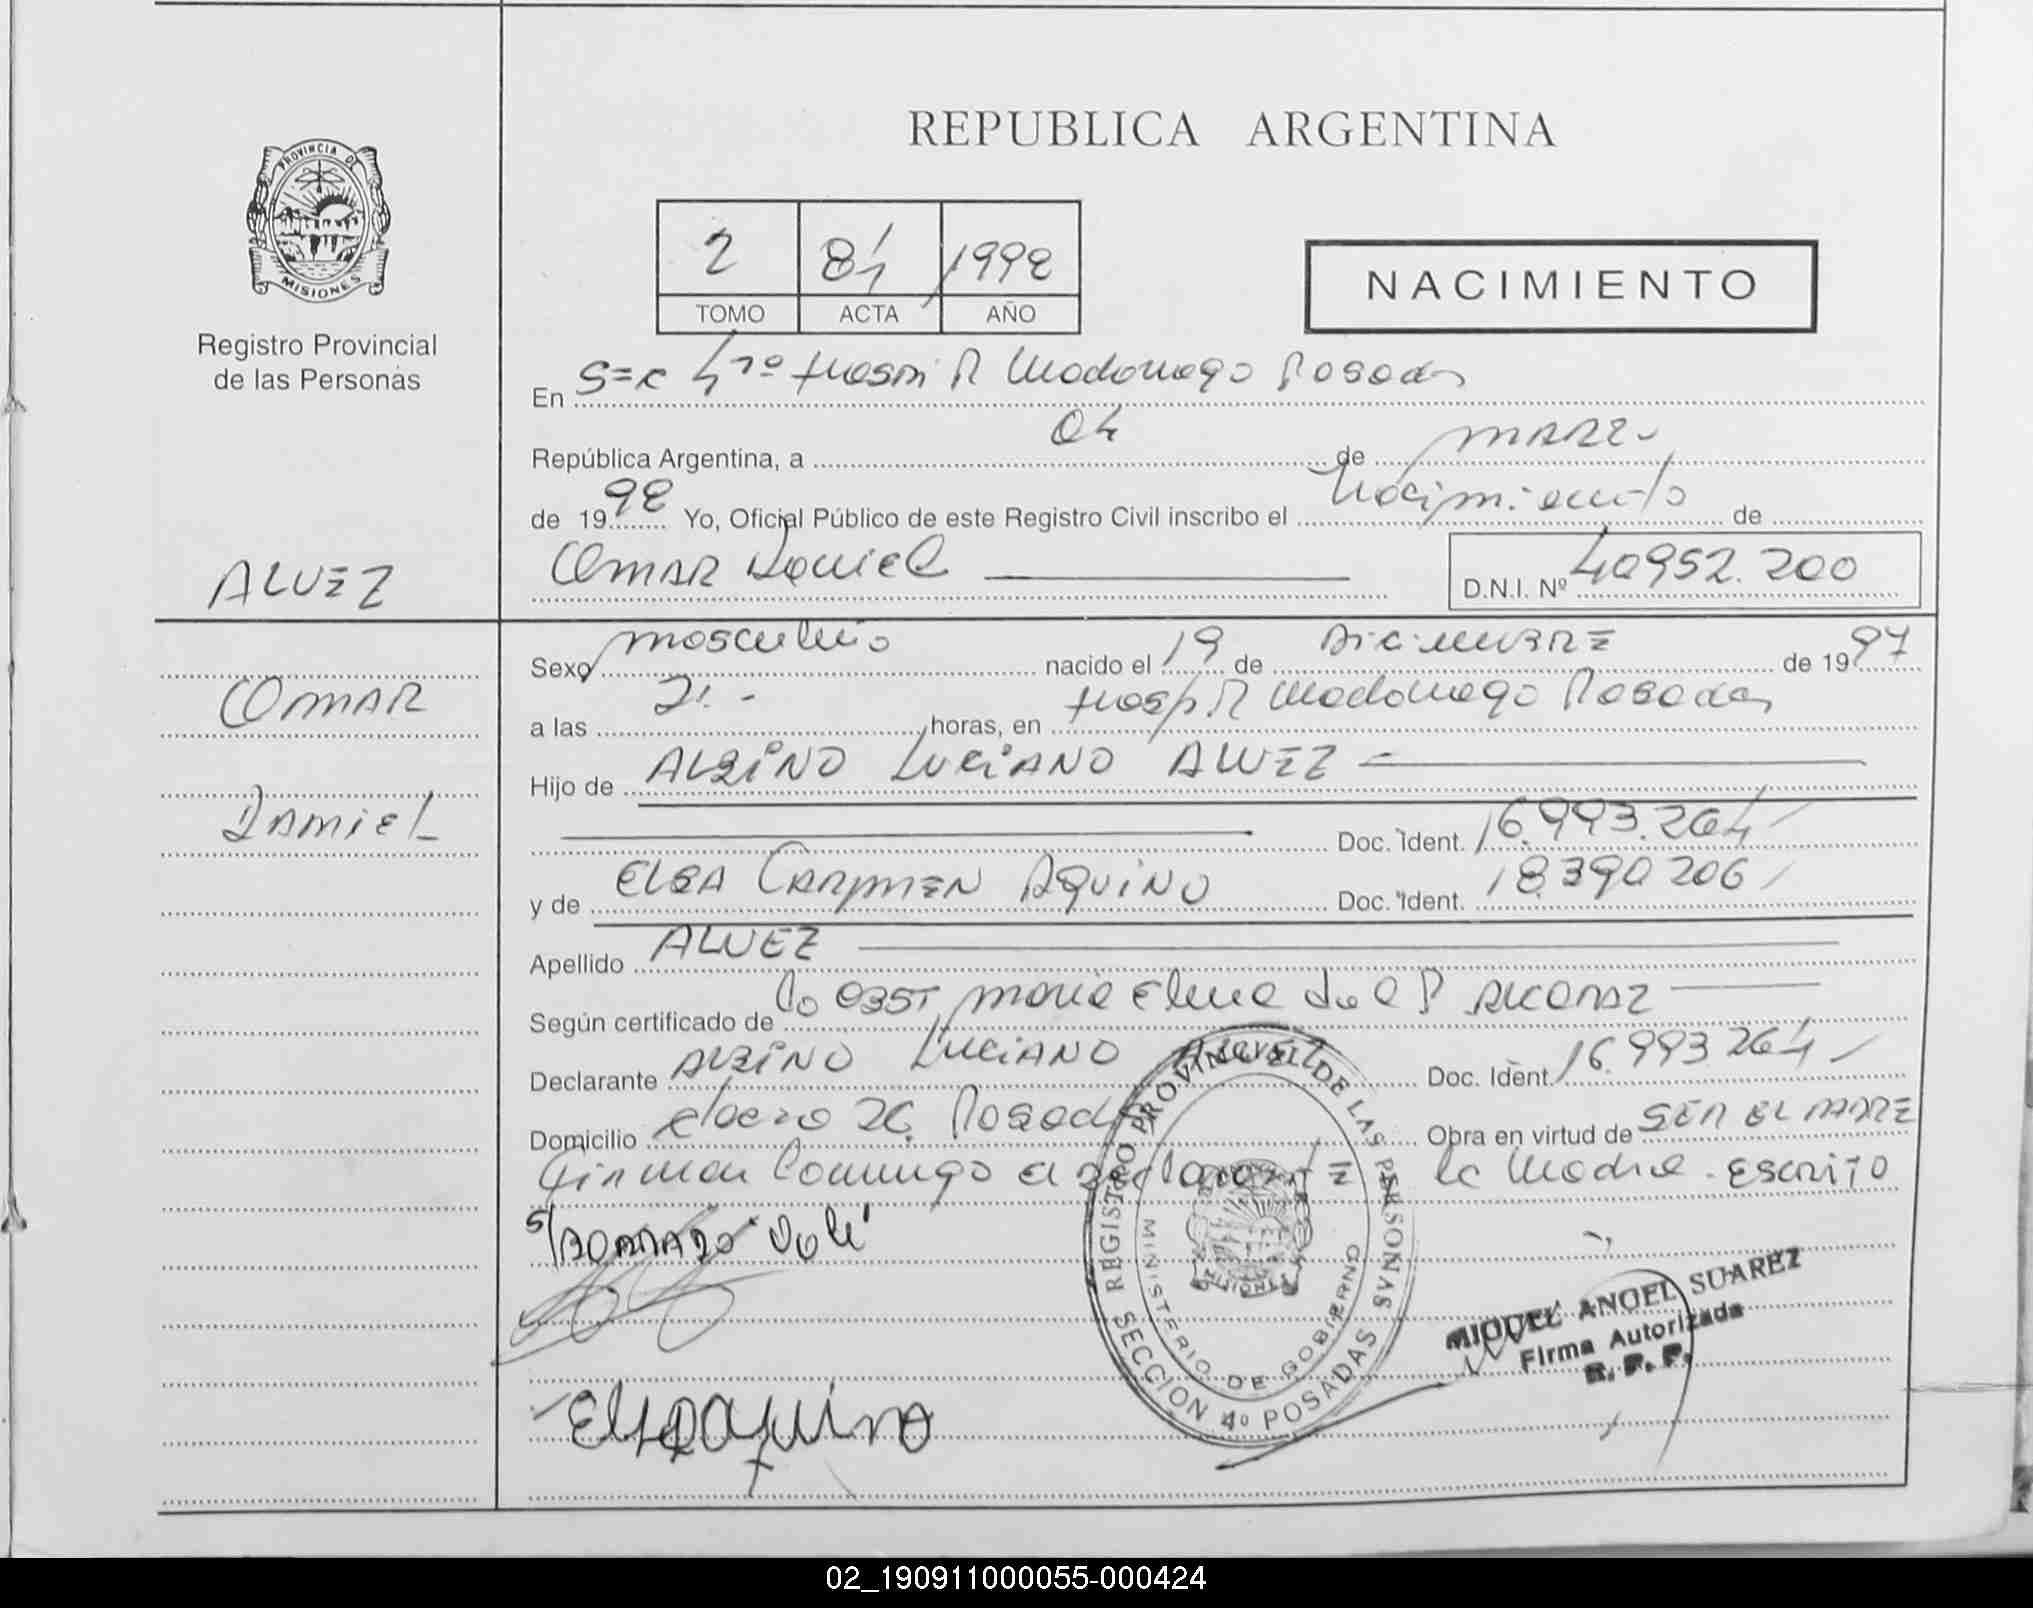 REPUBLICA ARGENTINA
PROVINCIA DE
MISIONES
Registro Provincial
de las Personas
2 84 1998
TOMO ACTA AÑO
NACIMIENTO
En Sec 4ta Hosp R Madariaga Posadas
República Argentina, a 04 de marzo
de 1998 Yo, Oficial Público de este Registro Civil inscribo el Nacimiento de
ALVEZ
Omar Daniel
D.N.I. Nº 40952.200
OMAR
DANIEL
Sexo masculino nacido el 19 de Diciembre de 1997
a las 21.- horas, en Hosp R Madariaga Posadas
Hijo de ALBINO LUCIANO ALVEZ
Doc. Ident. 16.993.264
y de ELBA CARMEN AQUINO Doc. Ident. 18.390206
Apellido ALVEZ
Según certificado de OBST Maria Elena de ALCARAZ
Declarante ALBINO LUCIANO ALVEZ Doc. Ident. 16.993.264
Domicilio 26 Posadas Obra en virtud de SER EL PADRE
Firman Conmigo el declarante la Madre. ESCRITO
S/BORRADO Vale
REGISTRO PROVINCIAL DE LAS PERSONAS
MINISTERIO DE GOBIERNO
MISIONES
SECCION 4º POSADAS
Elba Aquino
MIGUEL ANGEL SUAREZ
Firma Autorizada
R. P. P.
02_190911000055-000424